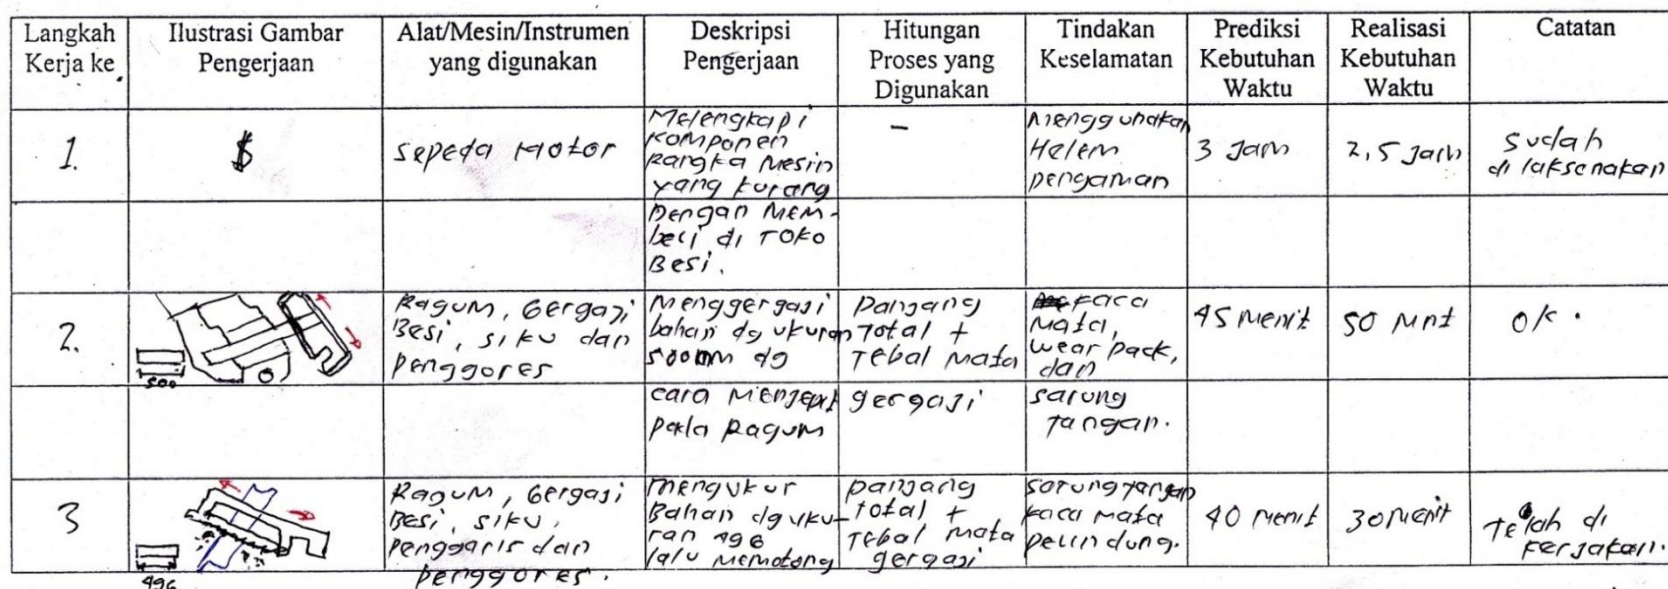 Langkah
Kerja ke
Ilustrasi Gambar
Pengerjaan
Alat/Mesin/Instrumen
yang digunakan
Deskripsi
Pengerjaan
Hitungan
Proses yang
Digunakan
Tindakan
Keselamatan
Prediksi
Kebutuhan
Waktu
Realisasi
Kebutuhan
Waktu
Catatan
1.
$
sepeda Motor
Melengkapi
Komponen
Rangka Mesin
yang kurang
Dengan Mem-
beli di Toko
Besi.
-
Menggunakan
Helem
pengaman
3 Jam
2,5 Jam
Sudah
di laksanakan
2.
500
Ragum, Gergaji
Besi, siku dan
Penggores
Menggergaji
bahan dg ukuran
500mm dg
cara Menjepit
pada Ragum
Panjang
Total +
Tebal Mata
gergaji
kaca
Mata,
wear pack,
dan
sarung
Tangan.
45 Menit
50 Mnt
Ok.
3
496
Ragum, Gergaji
Besi, siku,
Penggaris dan
penggores.
Mengukur
Bahan dg uku-
ran 496
lalu Memotong
panjang
total +
Tebal Mata
gergaji
Sarung tangan
kaca Mata
pelindung.
40 Menit
30 Menit
Telah di
Kerjakan.